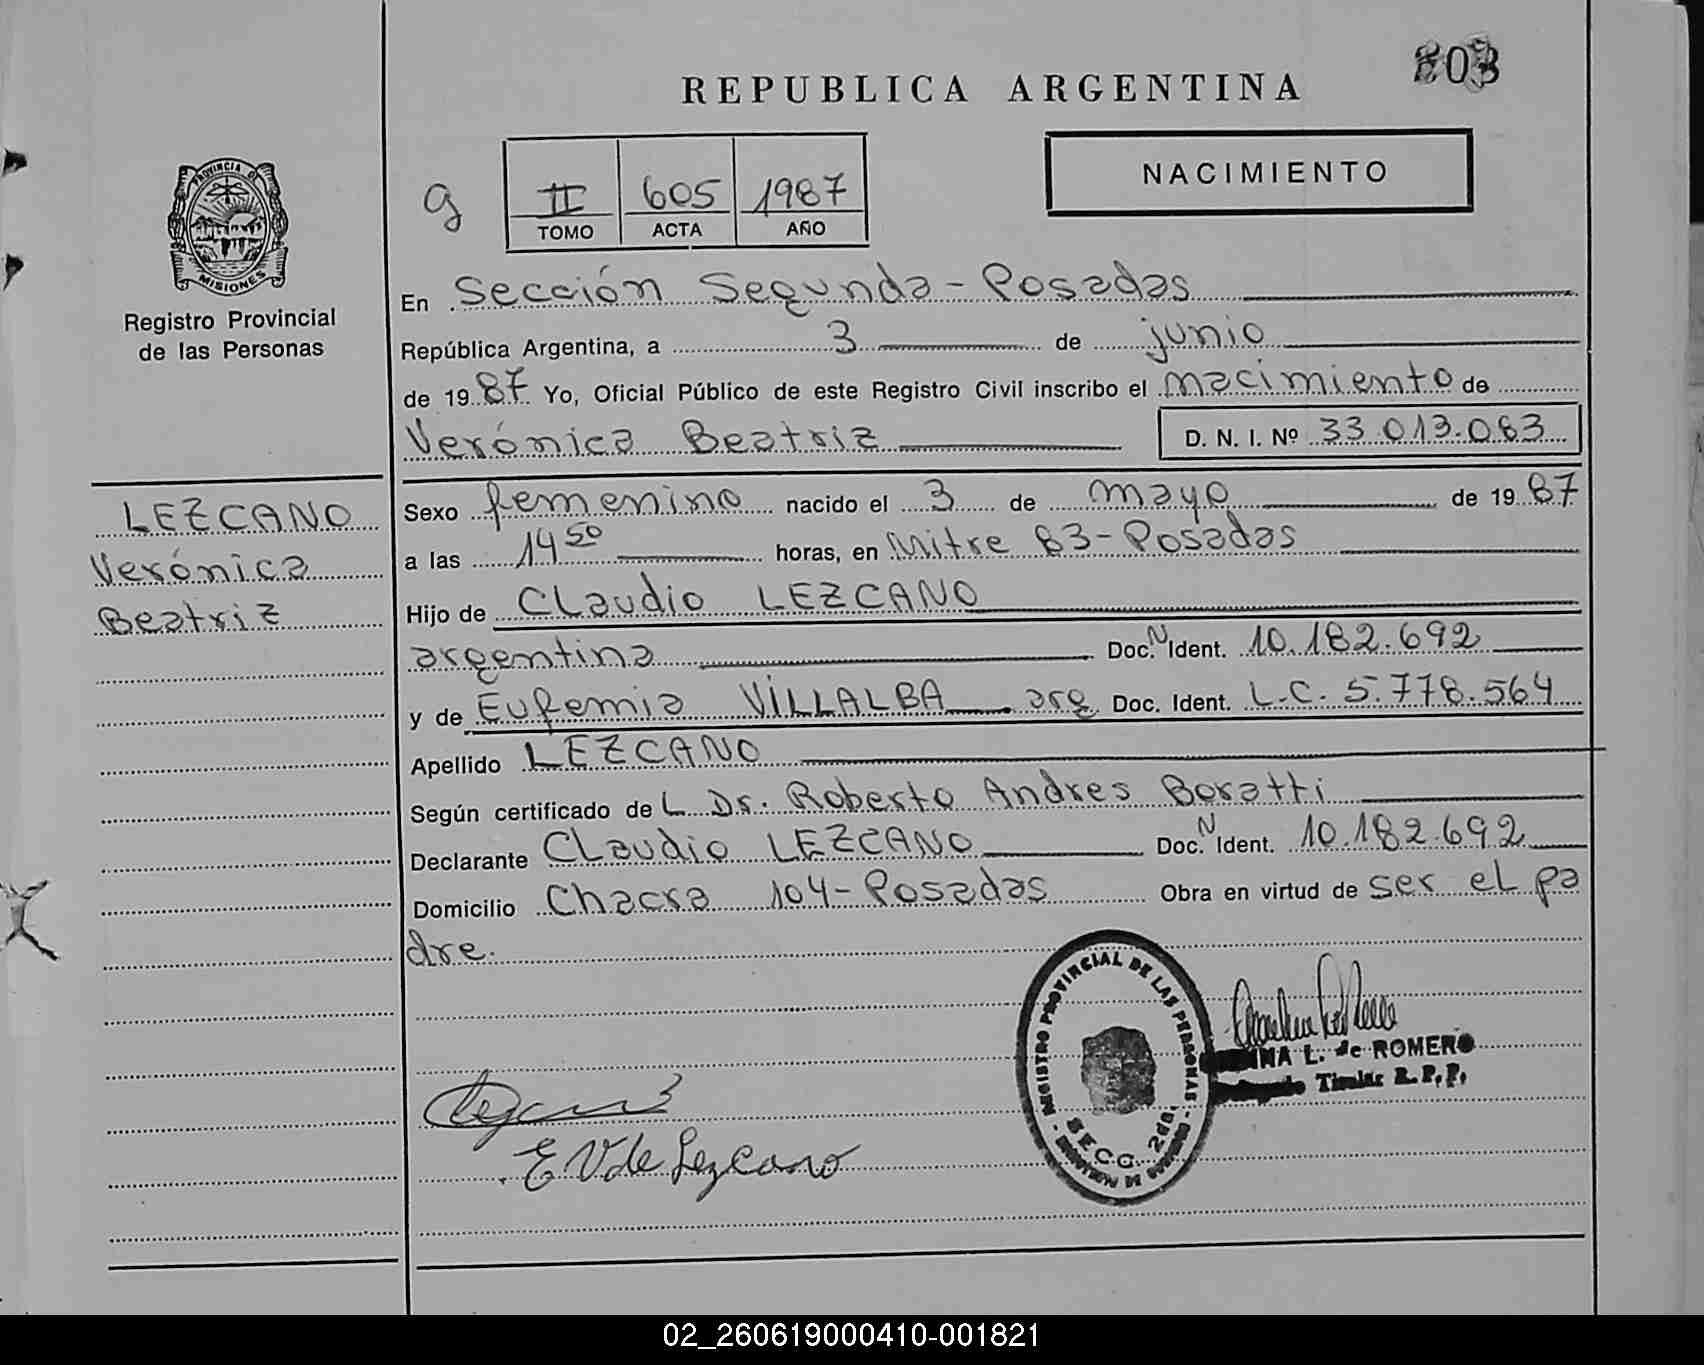 REPUBLICA ARGENTINA
PROVINCIA DE MISIONES
Registro Provincial
de las Personas
g
II 605 1987
TOMO ACTA AÑO
NACIMIENTO
En Sección Segunda - Posadas
República Argentina, a 3 de junio
de 1987 Yo, Oficial Público de este Registro Civil inscribo el nacimiento de
Verónica Beatriz D. N. I. Nº 33.013.083
LEZCANO
Verónica
Beatriz
Sexo femenino nacido el 3 de mayo de 1987
a las 14 50 horas, en Mitre 83 - Posadas
Hijo de Claudio LEZCANO
argentina Doc. N Ident. 10.182.692
y de Eufemia VILLALBA arg Doc. Ident. L.C. 5.778.564
Apellido LEZCANO
Según certificado de L Dr. Roberto Andres Boratti
Declarante Claudio LEZCANO Doc. N Ident. 10.182.692
Domicilio Chacra 104 - Posadas Obra en virtud de ser el pa
dre.
REGISTRO PROVINCIAL DE LAS PERSONAS
SECC. 2da.
L. de ROMERO
Titular R. P. P.
E V de Lezcano
02_260619000410-001821